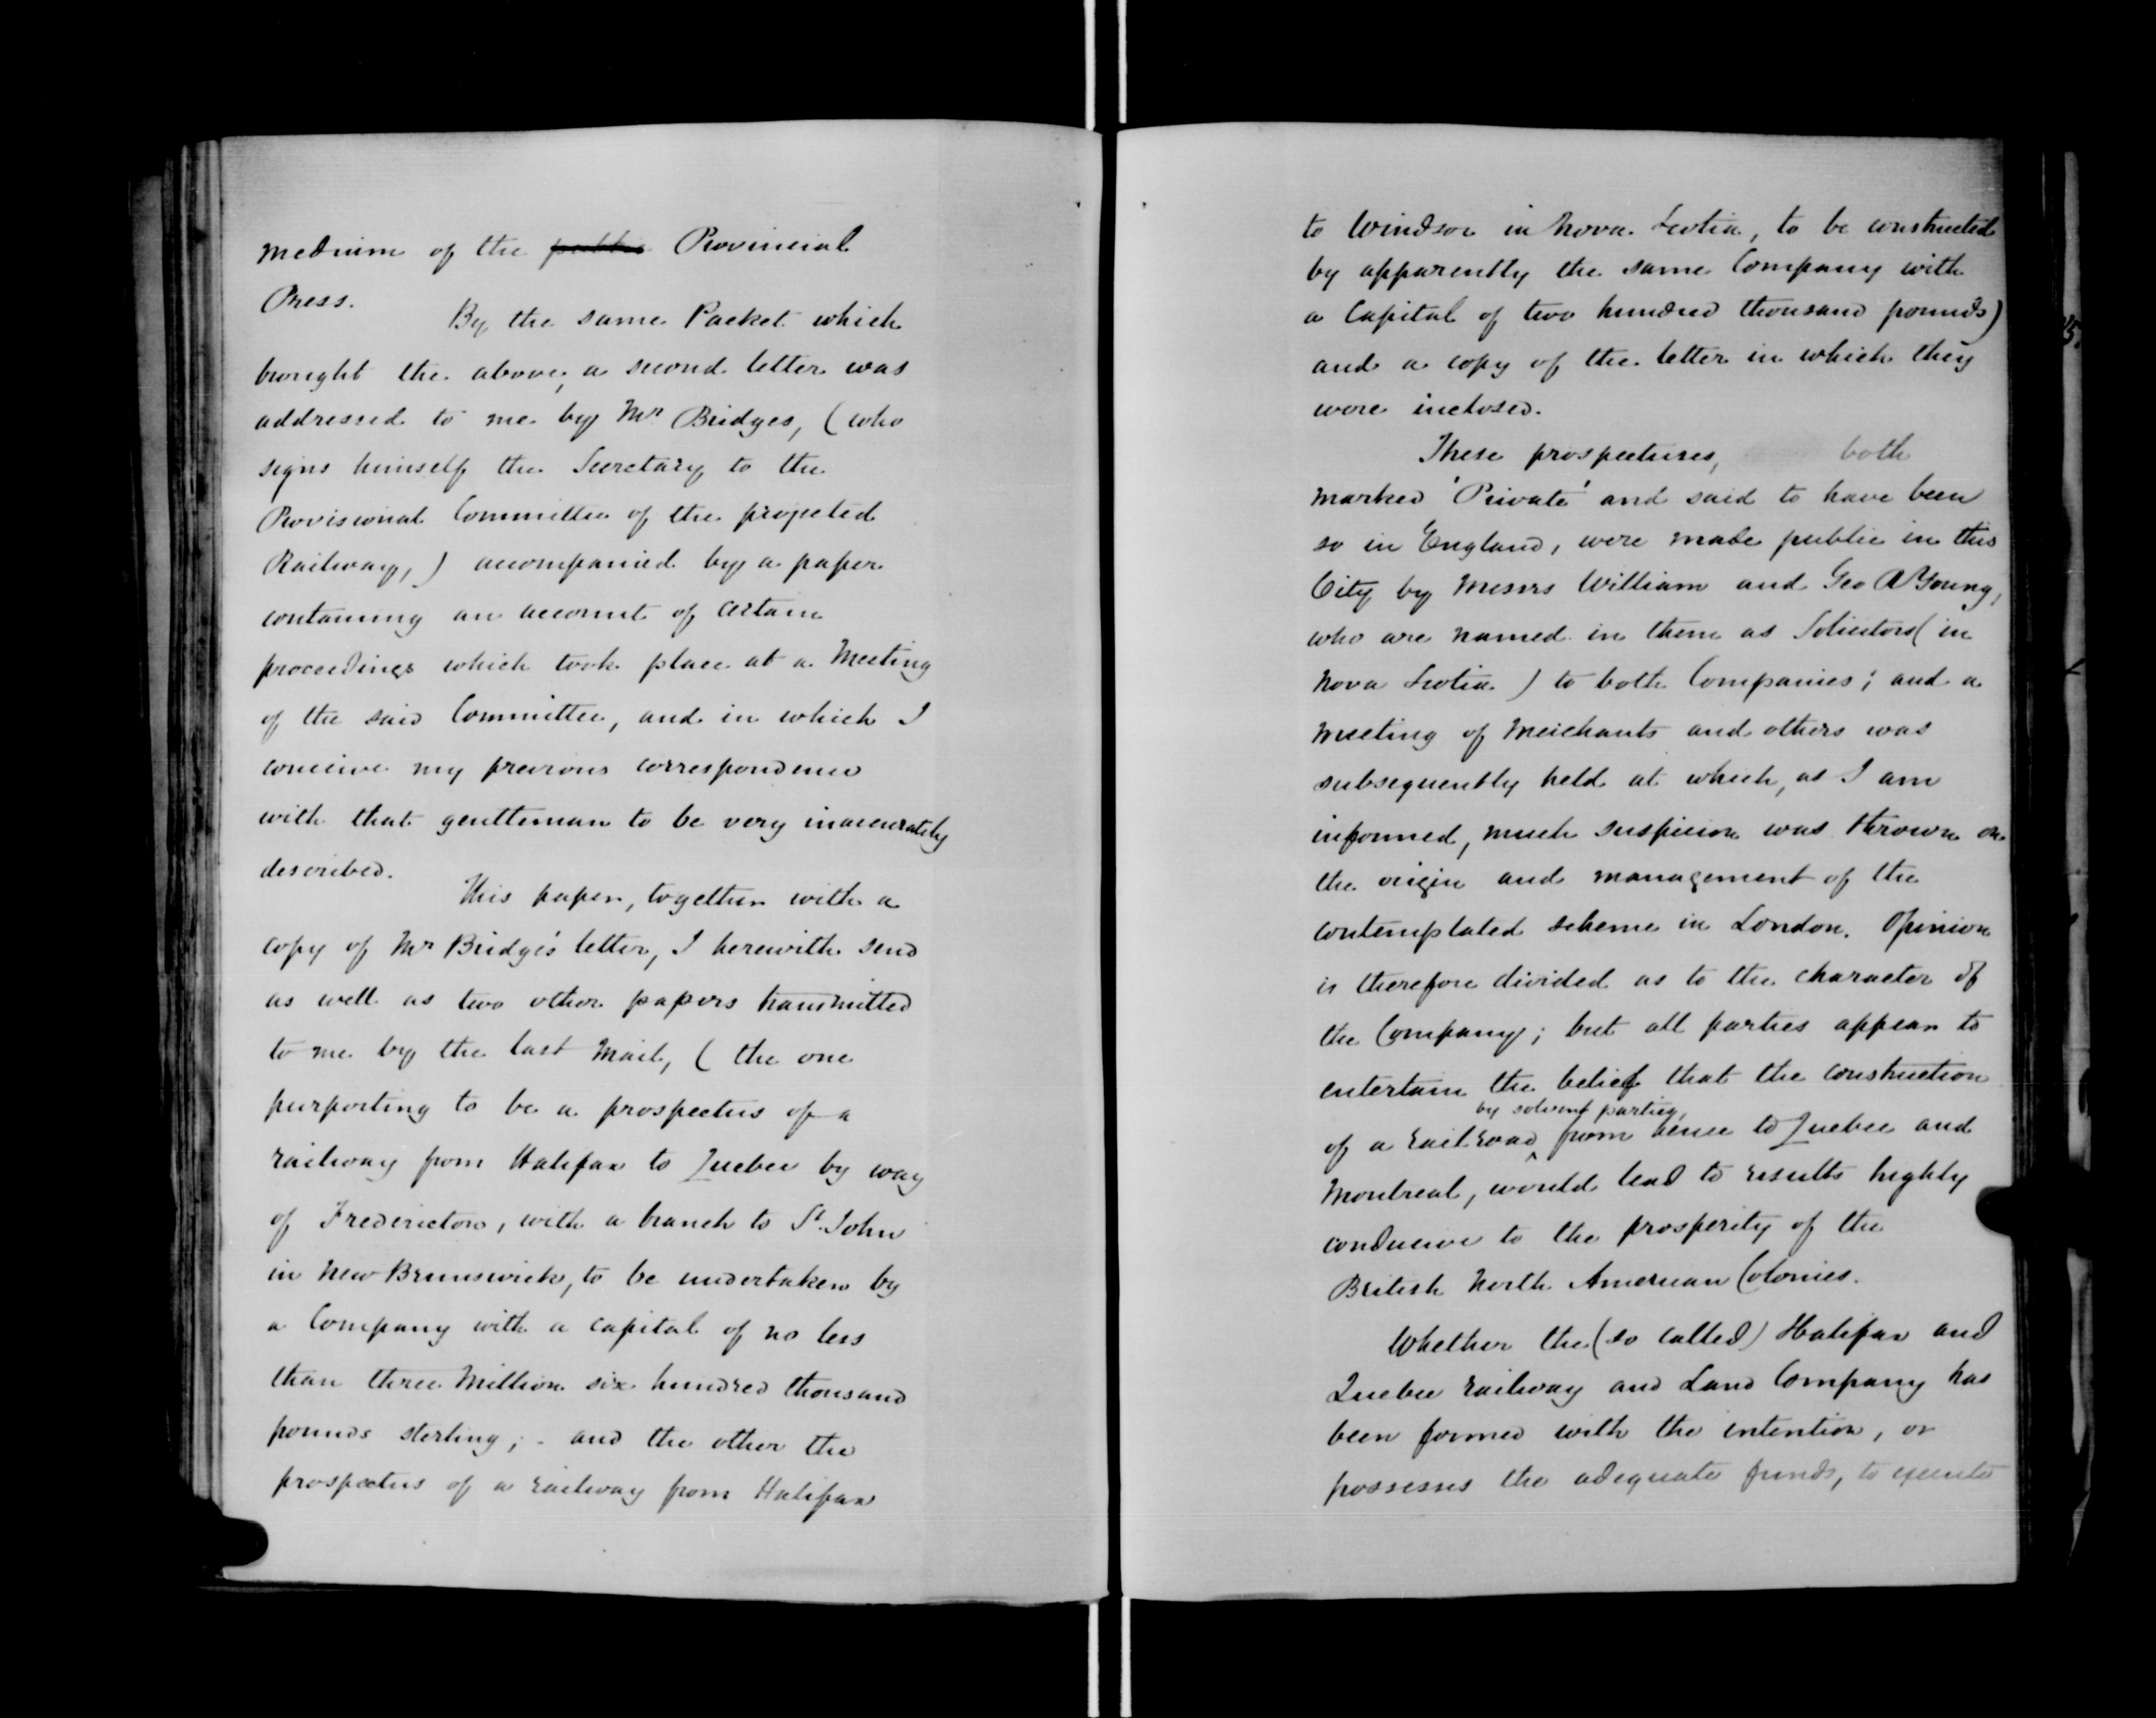 medium of the public Provincial
Press.
By the same Packet which
brought the above, a second letter was
addressed to me by Mr Bridges, (who
signs himself the Secretary to the
Provisional Committee of the projected
Railway,) accompanied by a paper
containing an account of certain
proceedings which took place at a Meeting
of the said Committee, and in which I
conceive my previous correspondence
with that gentleman to be very inaccurately
described.
This paper, together with a
copy of Mr Bridge's letter, I herewith send
as well as two other papers transmitted
to me by the last Mail, (the one
purporting to be a prospectus of a
railway from Halifax to Quebec by way
of Fredericton, with a branch to St. John
in New Brunswick, to be undertaken by
a Company with a capital of no less
than three Million six hundred thousand
pounds sterling; - and the other the
prospectus of a railway from Halifax
to Windsor in Nova Scotia, to be constructed
by apparently the same Company with
a Capital of two hundred thousand pounds)
and a copy of the letter in which they
were inclosed.
These prospectuses, both
marked 'Private' and said to have been
so in England, were made public in this
City by Messrs William and Geo R Young,
who are named in them as Solicitors (in
Nova Scotia) to both Companies; and a
meeting of Merchants and others was
subsequently held at which, as I am
informed, much suspicion was thrown on
the origin and management of the
contemplated scheme in London. Opinion
is therefore divided as to the character of
the Company; but all parties appear to
entertain the belief that the construction
by solvent parties,
of a railroad ^ from hence to Quebec and
Montreal, would lead to results highly
conducive to the prosperity of the
British North American Colonies.
Whether the (so called) Halifax and
Quebec railway and Land Company has
been formed with the intention, or
possesses the adequate funds, to execute